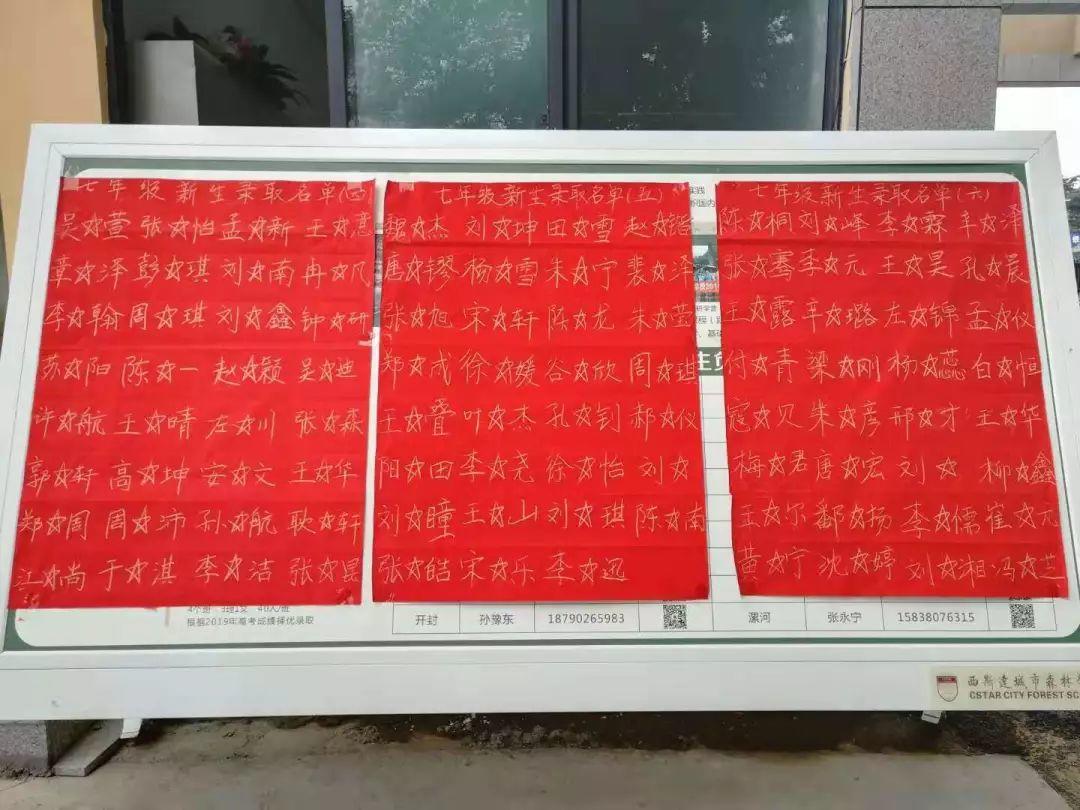 七年级新生录取名单(四)
吴☆萱 张☆怡 孟☆新 王☆
章☆泽 彭☆琪 刘☆南 冉☆凡
李☆翰 周☆琪 刘☆鑫 钟☆研
苏☆阳 陈☆一 赵☆颖 吴☆迪
许☆航 王☆晴 左☆川 张☆森
郭☆轩 高☆坤 安☆文 王☆华
郑☆周 周☆沛 孙☆航 耿☆轩
江☆尚 于☆淇 李☆洁 张☆昊
七年级新生录取名单(五)
魏☆杰 刘☆坤 田☆雪 赵☆
唐☆镠 杨☆雪 朱☆宁 裴☆泽
张☆旭 宋☆轩 陈☆龙 朱☆莹
郑☆成 徐☆媛 谷☆欣 周☆琪
王☆叠 叶☆杰 孔☆钊 郝☆仪
阳☆田 李☆尧 徐☆怡 刘☆
刘☆瞳 王☆山 刘☆琪 陈☆南
张☆皓 宋☆乐 李☆迅
七年级新生录取名单(六)
陈☆桐 刘☆峰 李☆霖 牟☆泽
张☆骞 李☆元 王☆昊 孔☆晨
王☆露 辛☆璐 左☆锦 孟☆仪
付☆青 梁☆刚 杨☆蕊 白☆恒
寇☆贝 朱☆彦 邢☆才 王☆华
梅☆君 唐☆宏 刘☆ 柳☆鑫
王☆尔 鄱☆扬 李☆儒 崔☆元
黄☆宁 沈☆婷 刘☆湘 冯☆芝
根据2019年高考成绩择优录取
开封 孙豫东 18790265983 漯河 张永宁 15838076315
西斯达城市森林
CSTAR CITY FOREST SC